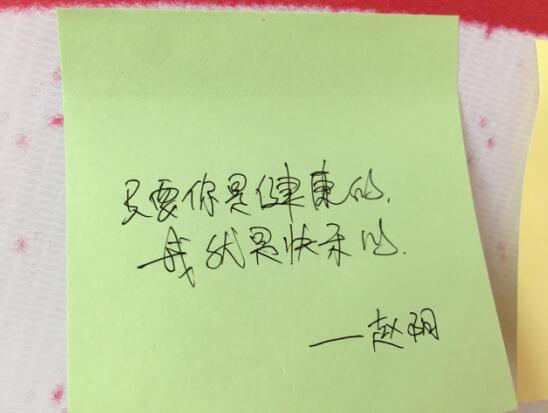 只要你是健康的.
我就是快乐的.
—赵阴